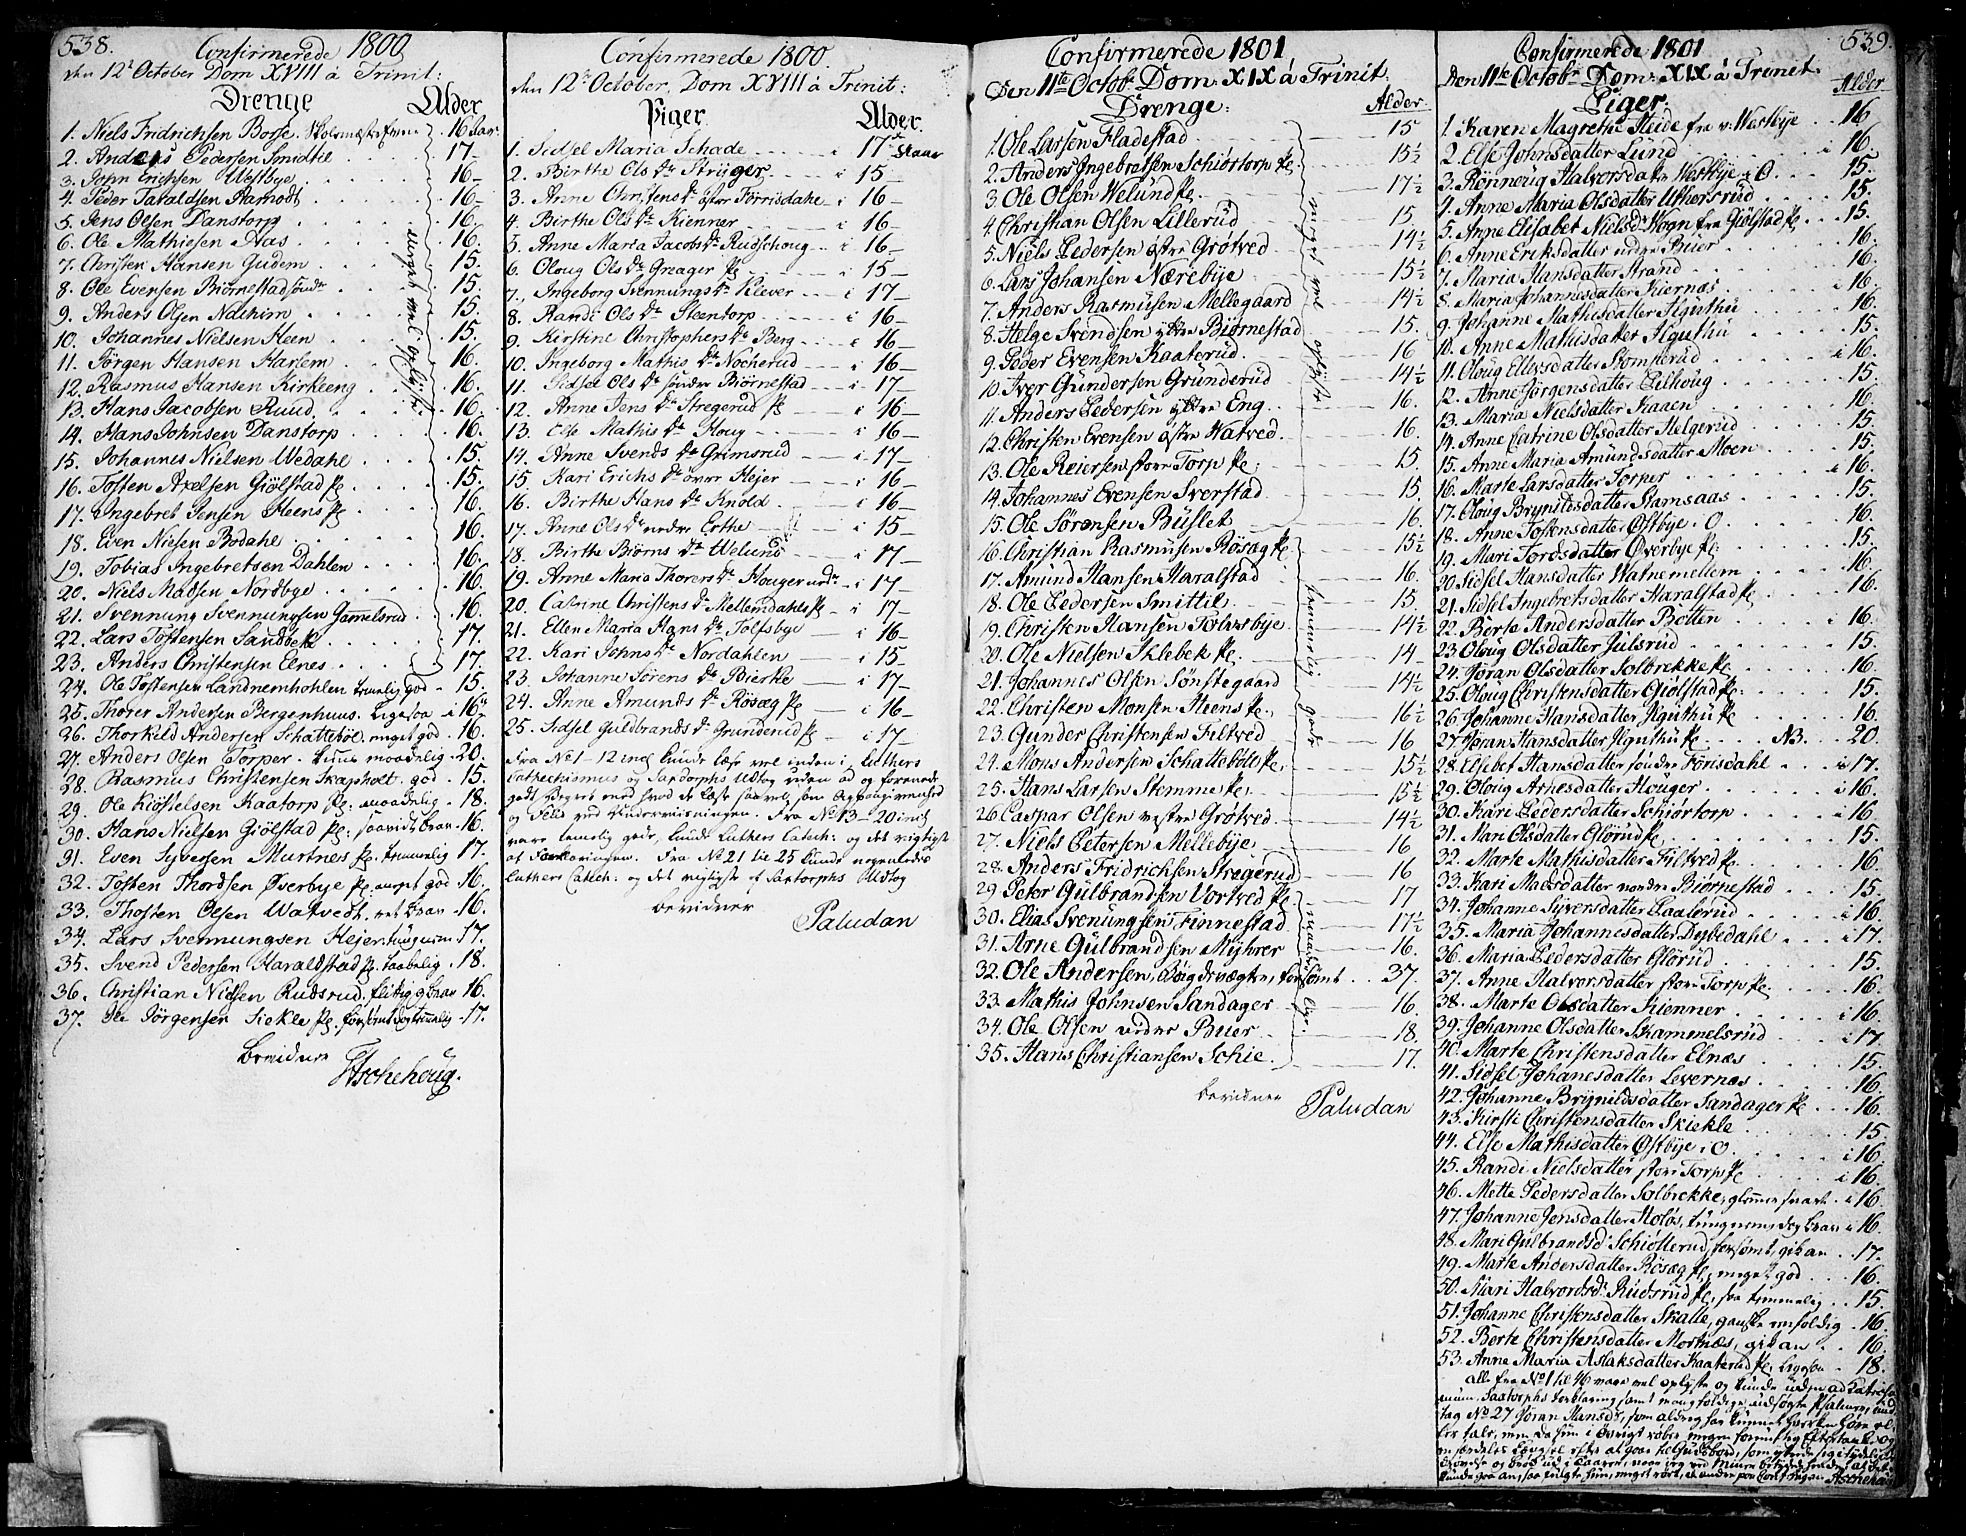 538.
Confirmerede 1800.
den 12t October Dom XVIII à Trinit:
Drenge Alder
1. Niels Fridrichsen Borse. 16 aar
2. Anders Pedersen Smidtil 17
3. John Erichsen Westbye 16
4. Peder Taraldsen Aamodt 16
5. Jens Olsen Danstorp 16
6. Ole Mathiesen Aas 16
7. Christen Hansen Gudem 15
8. Ole Evensen Biørnestad søndr 15
9. Anders Olsen 15
10. Johannes Nielsen Heen 15
11. Jørgen Hansen Harlem 16
12. Rasmus Hansen Kirkeeng 16
13. Hans Jacobsen Ruud 16
14. Hans Johnsen Danstorp 16
15. Johannes Nielsen Wedahl 15
16. Tosten Axelsen Giølstad pl. 15
17. Ingebret Jensen Heens pl. 16
18. Even Nielsen Bodahl 16
19. Tobias Ingebretsen Dahlen 16
20. Niels Madsen Nordbye 16
21. Svennung Svennungsen Gammelsrud 16
22. Lars Tostensen Sandbek 17
23. Anders Christensen Elnes 17
meget vel oplyste
24. Ole Tostensen Landnemhohlen temelig god 15
25. Thorer Andersen Bergenhuus. Ligesaa i 16
36. Thorkild Andersen Schattebøl. meget god 16
27. Anders Olsen Torper. maadelig 20
28. Rasmus Christensen Skapholt god 15
29. Ole Kiøstelsen Kaatorp pl. maadelig 18
30. Hans Nielsen Giølstad pl: 16
31. Even Syversen Murtnes pl. temmelig 17
32. Tosten Thordsen Øverbye pl. meget god 16
33. Thosten Olsen Watvedt. ret brav 16
34. Lars Svennungsen Hejer. tungnem 17
35. Svend Pedersen Haraldstad pl. taabelig 18
36. Christian Nielsen Rudsrud. flittig g brav 16
37. Ole Jørgensen Siekle pl. 17
bevidner
Aschehoug.
Confirmerede 1800.
den 12t October, Dom XVIII à Trinit:
Piger Alder
1. Sidsel Maria Schade i 17de Aaar
2. Birthe Ols Dr Stryger i 15
3. Anne Christens Dr østre Forrisdahl i 16
4. Birthe Ols Dr Kienner i 16
5. Anne Maria Jacobs Dr Rudschoug i 16
6. Oloug Ols Dr Greager pl. i 15
7. Ingeborg Svennungs Dr Klever i 17
8. Randi Ols Dr Steentorp i 16
9. Kirstine Christophers Dr Berg i 16
10. Ingeborg Mathis Dr Nocherud i 16
11. Sidsel Ols Dr søndre Biørnestad i 17
12. Anne Jens Dr Stregerud pl. i 16
13. Else Mathis Dr Houg i 16
14. Anne Svends Dr Grimsrud i 17
15. Kari Erichs Dr øvre Hejer i 16
16. Birthe Hans Dr Knold i 16
17. Anne Ols Dr nedre Erthe i 15
18. Birthe Biørns Dr Welund i 17
19. Anne Maria Thorers Dr Houger i 17
20. Catrine Christens Dr Mellemdahls pl i 17
21. Ellen Maria Hans Dr Tolfsbye i 16
22. Kari Johns Dr Nordahlen i 15
23. Johanne Sørens Dr Bierke i 17
24. Anne Amunds Dr Røsæg pl i 16
25. Sidsel Guldbrands Dr Grundsrud pl i 17
Fra No 1–12 incl kunde læse vel inden i Luthers
Cathechismus og Sardorphs Udtog uden ad og forenede
godt Begreb med hvad de læste saavelsom Agtpaagivenhed
og Flid ved Underviisningen. Fra No 13–20 incl
vare temelig gode, kunde Luthers Catech: og det vigtigste
af Forklaringen. Fra No 21 til 25 kunde nogenledes
Luthers Catech: og det vigtigste af Saxtorphs Udtog
bevidner
Paludan
Confirmerede 1801
Den 11te Octobr Dom: XIX à Trinit:
Drenge: Alder
1. Ole Larsen Fladestad 15
2. Anders Ingebretsen Schiørtorp pl. 15½
3. Ole Olsen Welund pl. 17½
4. Christian Olsen Lillerud 15
5. Niels Pedersen østre Grøtved 14½
6. Lars Johansen Nærebye 15½
7. Anders Rasmusen Mellegaard 14½
8. Helge Svendsen yttre Biørnestad 15
9. Peder Evensen Kaaterud 16
10. Iver Gundersen Grunderud 14½
11. Anders Pedersen yttre Eng 16
12. Christen Evensen østre Watved 16
13. Ole Reiersen store Torp pl: 15
14. Johannes Evensen Sverstad 15
15. Ole Sørensen Buslet 16
meget vel oplyste
16. Christian Rasmusen Røsæg pl. 15½
17. Amund Hansen Haralstad 16
18. Ole Pedersen Smittil 15
19. Christen Hansen Tolvsbye 14½
20. Ole Nielsen Sklebek pl. 14
21. Johannes Olsen Sønstegaard 14½
22. Christen Monsen Heens pl. 16½
23. Gunder Christensen Filtved 16
24. Mons Andersen Schattebøls pl. 15½
25. Hans Larsen Stomme pl. 15½
26 Caspar Olsen vestre Grøtved 14½
27. Niels Petersen Mellebye 16
28. Anders Fridrichsen Stregerud 16
temmelig gode
29 Peter Gulbrandsen Vortved pl 17
30. Elias Svenungsen Finnestad 17½
31. Arne Gulbrandsen Myhrer 16
32. Ole Andersen, Böigdevægter, forsømt 37
33. Mathis Johnsen Sandager 16
34. Ole Olsen nedre Buer 18
35. Hans Christiansen Schie 17
bevidner
Paludan
539.
Confirmerede 1801
Den 11te Octobr Dom: XIX à Trinit:
Piger. Alder
1. Karen Magrethe Heide fra v: Westbye 16
2. Else Johnsdatter Lund i 16
3. Rønneug Halvorsdatr Westbye i O 15
4. Anne Maria Olsdatter Uthersrud 15
5. Anne Elisabet Nielsd: Kogn fra Giølstad pl. 15
6. Anne Eriksdatter nedre Buer 16
7. Maria Hansdatter Strand 16
8. Maria Johannisdatter Kiernæs i 16
9. Johanne Mathisdatter Hguthu 16
10. Anne Mathisdatter Hguthu 15
11. Oloug Ellevsdatter Stomperud i 16
12. Anne Jørgensdatter Lilhoug 15
13. Maria Nielsdatter Kaaen 16
14. Anne Catrine Olsdatter Helgerud 15
15. Anne Maria Amundsdatter Moen 15
16. Marte Larsdatter Torper i 16
17. Oloug Brynildsdatter Stamsaas 15
18. Anne Tostensdatter Østbye i O. 16
19. Mari Tordsdatter Øverbye pl. 15
20 Sidsel Hansdatter Watnemellem 16
21. Sidsel Ingebretsdatter Haralstad pl. 16
22. Berte Andersdatter Botten i 16
23 Oloug Olsdatter Julsrud 15
24. Jøran Olsdatter Solbrekke pl. 16
25. Oloug Christensdatter Giølstad pl. 15
26. Johanne Hansdatter Hguthu pl 16
27. Jøran Hansdatter Hguthu pl. NB. 20
28. Elsebet Hansdatter søndre Forisdahl i 17
29. Oloug Arnesdatter Houger i 16
30. Kari Pedersdatter Schiørtorp i 16
31. Mari Olsdatter Glorud pl. 15
32. Marte Mathisdatter Filtved pl. 16
33. Kari Madsdatter nordre Biørnestad 15
34. Johanne Syversdatter Laalerud i 16
35. Maria Johannesdatter Dybedahl i 17
36. Maria Pedersdatter Glorud 15
37. Anne Halvorsdatter store Torp pl. 16
38. Marte Olsdatter Kienner i 16
39. Johanne Olsdatter Skammelsrud i 17
40. Marte Christensdatter Elnæs 15
41. Sidsel Johanesdatter Levernæs 16
42. Johanne Brynildsdatter Sandager pl 16
43. Kirsti Christensdatter Skiekle 15
44. Else Mathisdatter Østbye i O i 16
45. Randi Nielsdatter store Torp pl i 16
46. Mette Pedersdatter Solbrekke, i 16
47. Johanne Jensdatter Holøs, tungnem, dog brav i 16
48. Mari Gulbrandsd. Schiøllerud, forsømt, 17
49. Marte Andersdatter Røsæg pl. meget god 16
50. Mari Halvordsdr Rudsrud pl, saa temmelig 15
51. Johanne Christensdatter Skatte, ganske enfoldig 16
52. Berte Christensdatter Mortnæs, 16
53. Anne Maria Aslaksdatter Kaaterud pl. Ligesaa 18.
Alle fra No 1 til 46 vare vel oplyste og kunde uden ad
Saxtorphs Forklaring samt mangfoldige udsøgte Psalmer, und-
tag No 27 Jøran Hansdr, som aldrig har kunnet
Aschehoug